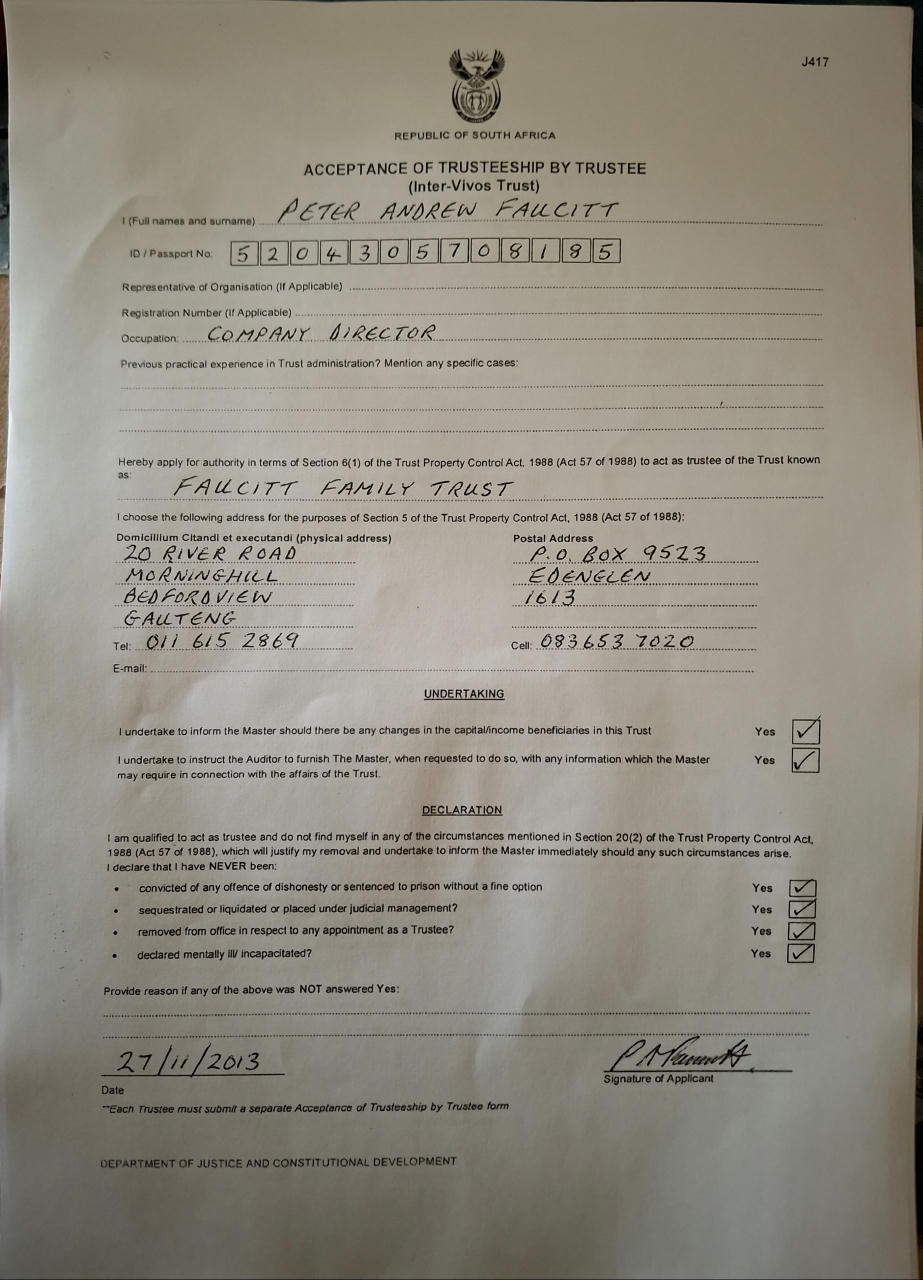 J417
REPUBLIC OF SOUTH AFRICA
ACCEPTANCE OF TRUSTEESHIP BY TRUSTEE
(Inter-Vivos Trust)
I (Full names and surname) PETER ANDREW FAUCITT
ID / Passport No: 5204305708185
Representative of Organisation (If Applicable)
Registration Number (If Applicable)
Occupation: COMPANY DIRECTOR
Previous practical experience in Trust administration? Mention any specific cases:
Hereby apply for authority in terms of Section 6(1) of the Trust Property Control Act, 1988 (Act 57 of 1988) to act as trustee of the Trust known
as: FAUCITT FAMILY TRUST
I choose the following address for the purposes of Section 5 of the Trust Property Control Act, 1988 (Act 57 of 1988):
Domicillium Citandi et executandi (physical address) Postal Address
20 RIVER ROAD P.O. BOX 9523
MORNINGHILL EDENGLEN
BEDFORDVIEW 1613
GAUTENG
Tel: 011 615 2869 Cell: 083 653 7020
E-mail:
UNDERTAKING
I undertake to inform the Master should there be any changes in the capital/income beneficiaries in this Trust Yes
I undertake to instruct the Auditor to furnish The Master, when requested to do so, with any information which the Master Yes
may require in connection with the affairs of the Trust.
DECLARATION
I am qualified to act as trustee and do not find myself in any of the circumstances mentioned in Section 20(2) of the Trust Property Control Act,
1988 (Act 57 of 1988), which will justify my removal and undertake to inform the Master immediately should any such circumstances arise.
I declare that I have NEVER been:
• convicted of any offence of dishonesty or sentenced to prison without a fine option Yes
• sequestrated or liquidated or placed under judicial management? Yes
• removed from office in respect to any appointment as a Trustee? Yes
• declared mentally ill/ incapacitated? Yes
Provide reason if any of the above was NOT answered Yes:
27/11/2013
Date Signature of Applicant
**Each Trustee must submit a separate Acceptance of Trusteeship by Trustee form
DEPARTMENT OF JUSTICE AND CONSTITUTIONAL DEVELOPMENT